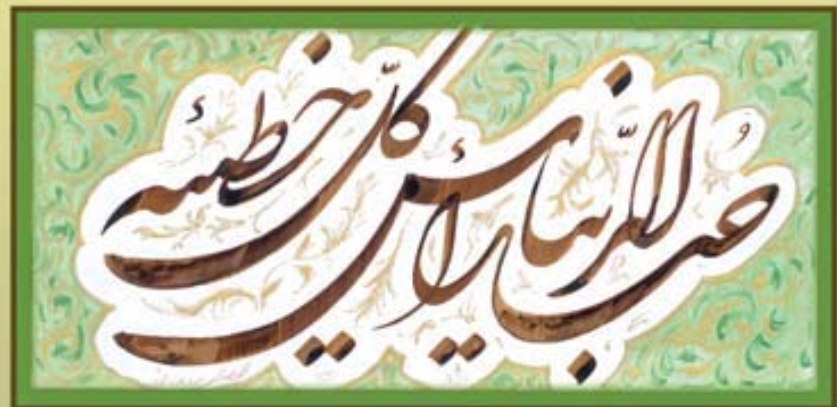 حُبّ الدّنیا رأس کلّ خطیئه